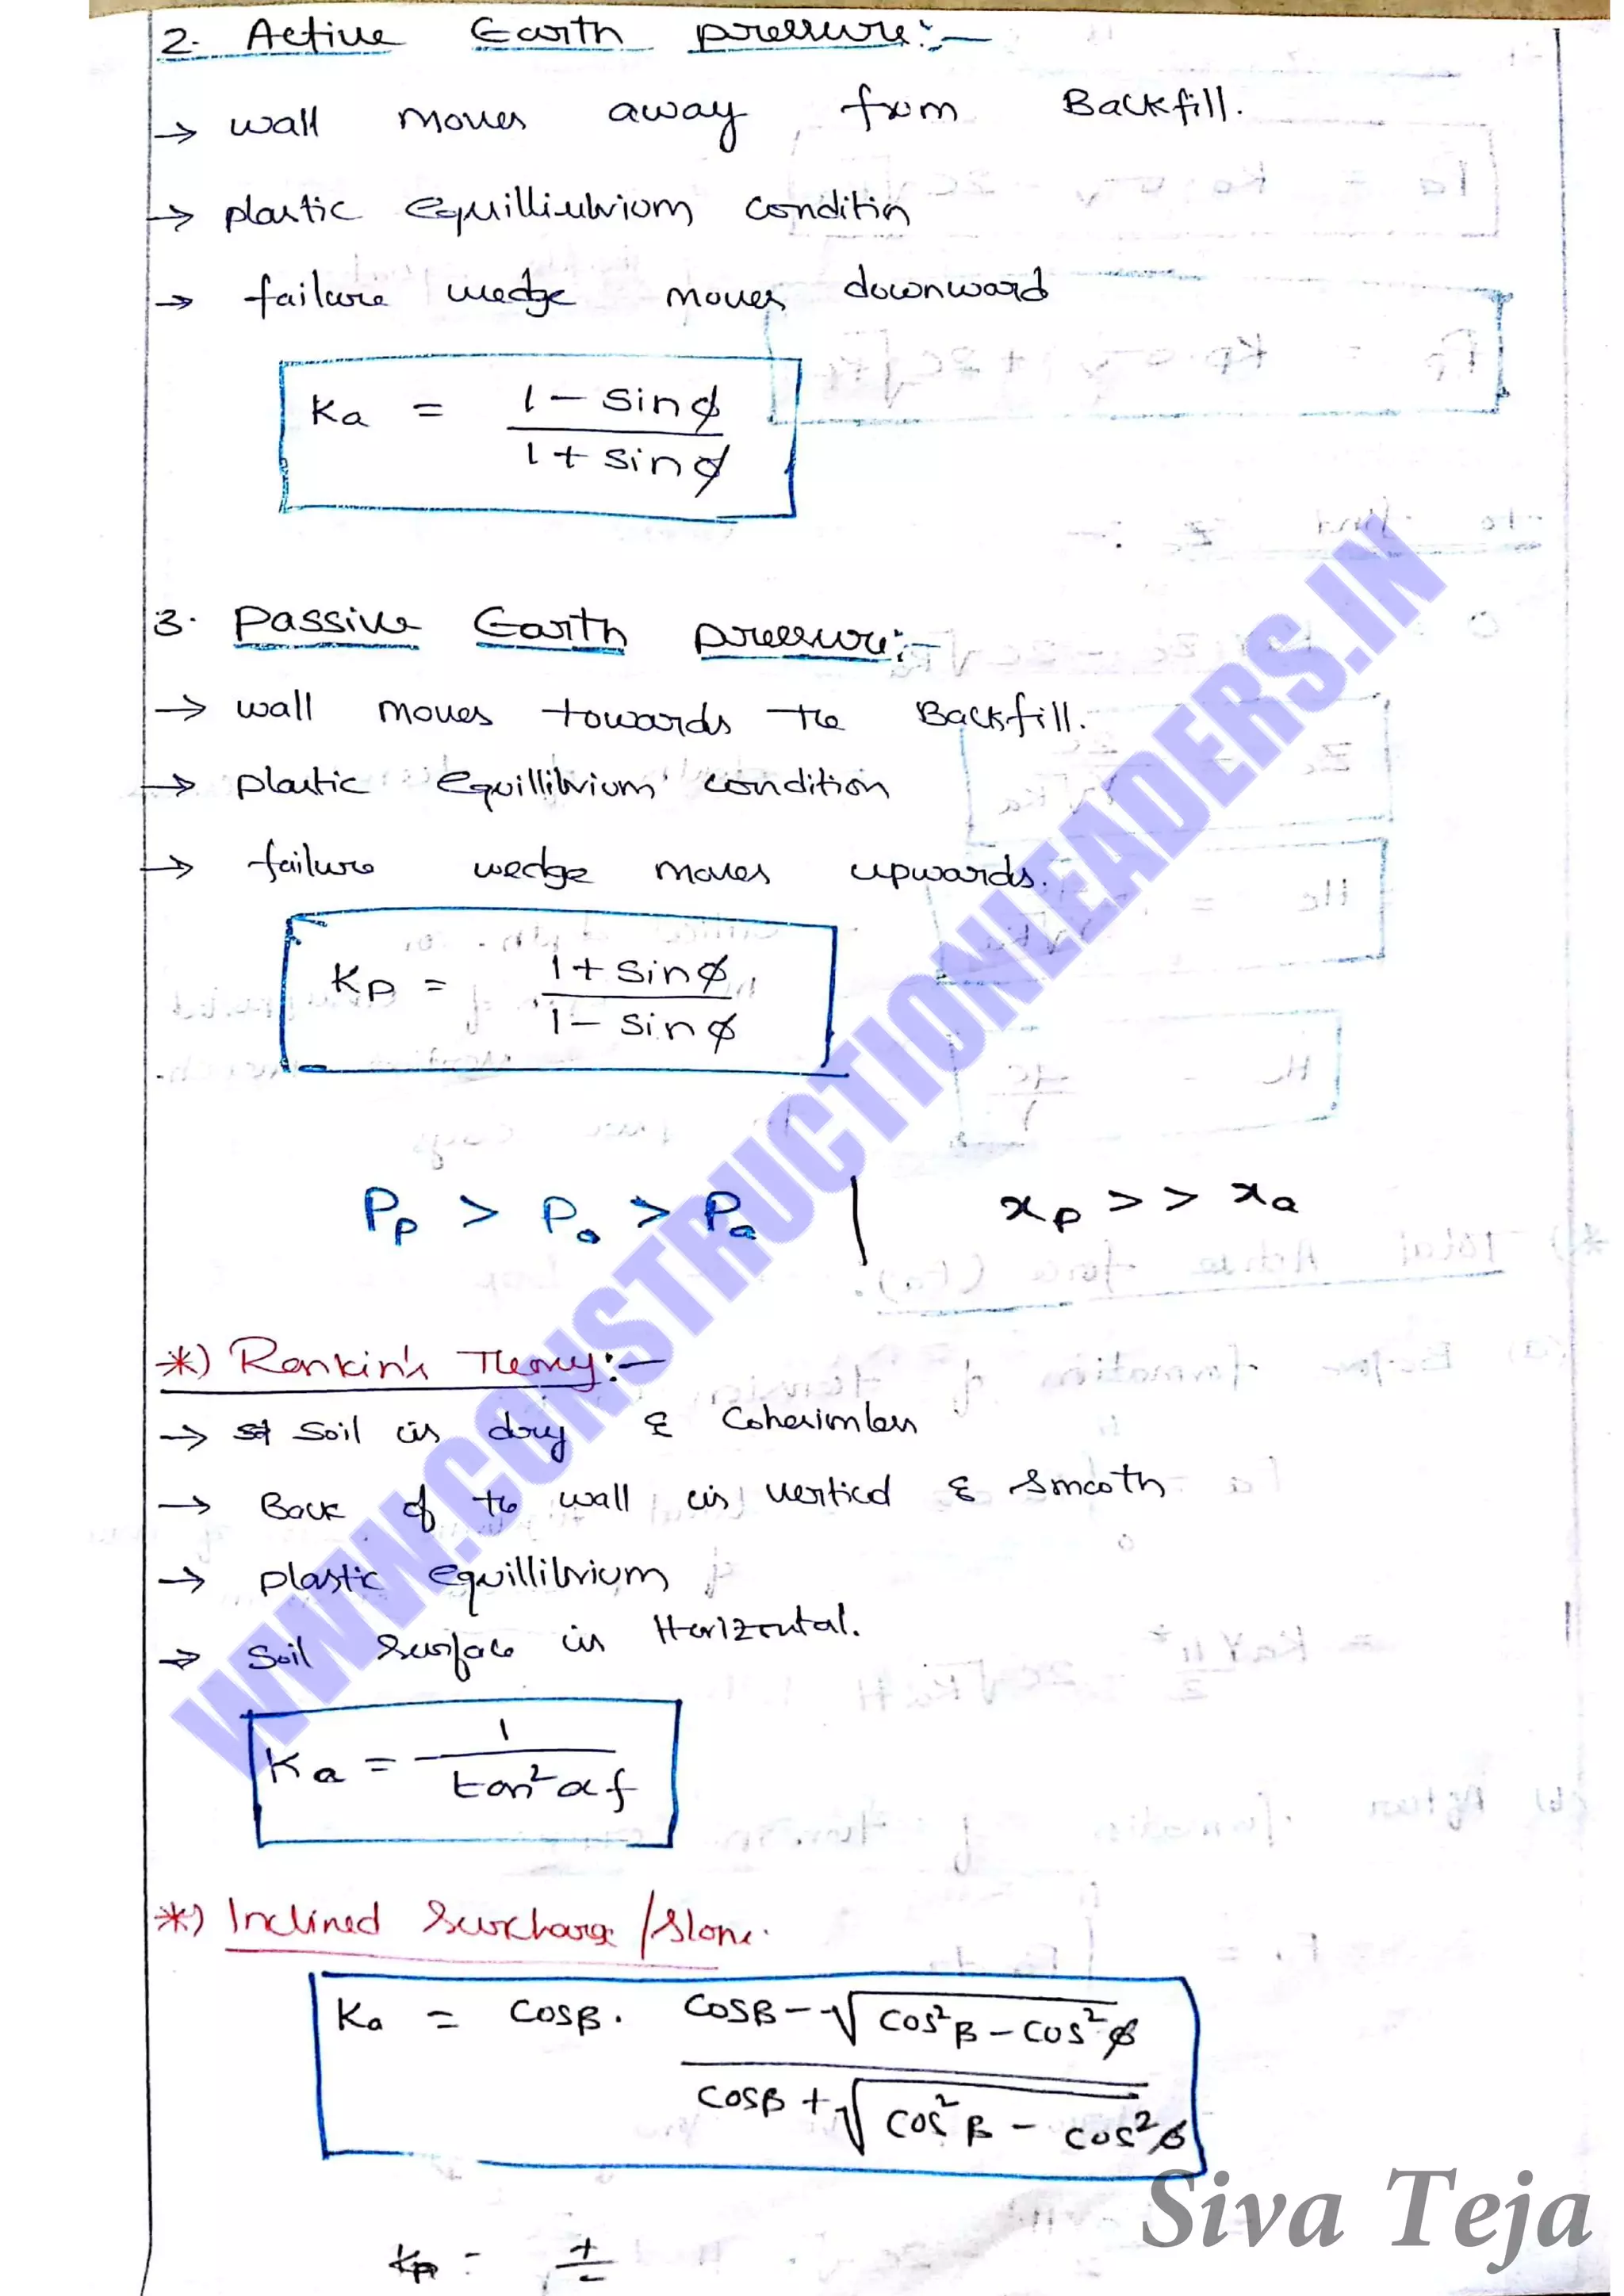 2. Active Earth pressure:-
→ wall moves away from Backfill.
→ plastic equilliubrium conditin
→ failure wedge moves downward
Ka = 1 - sinϕ / 1 + sinϕ
3. Passive Earth pressure:-
→ wall moves towards the Backfill.
→ plastic equillibrium condition
→ failure wedge moves upwards.
Kp = 1 + sinϕ / 1 - sinϕ
Pp > Po > Pa | xp >> xa
*) Rankin's Theory:-
→ Soil is dry & Cohesionless
→ Back of the wall is vertical & smooth
→ plastic equillibrium
→ Soil surface is Horizontal.
Ka = 1 / tan²αf
*) Inclined Surcharge /slope.
Ka = cosβ. cosβ - √cos²β - cos²ϕ / cosβ + √cos²β - cos²ϕ
Kp = + / -
WWW.CONSTRUCTIONLEADERS.IN
Siva Teja